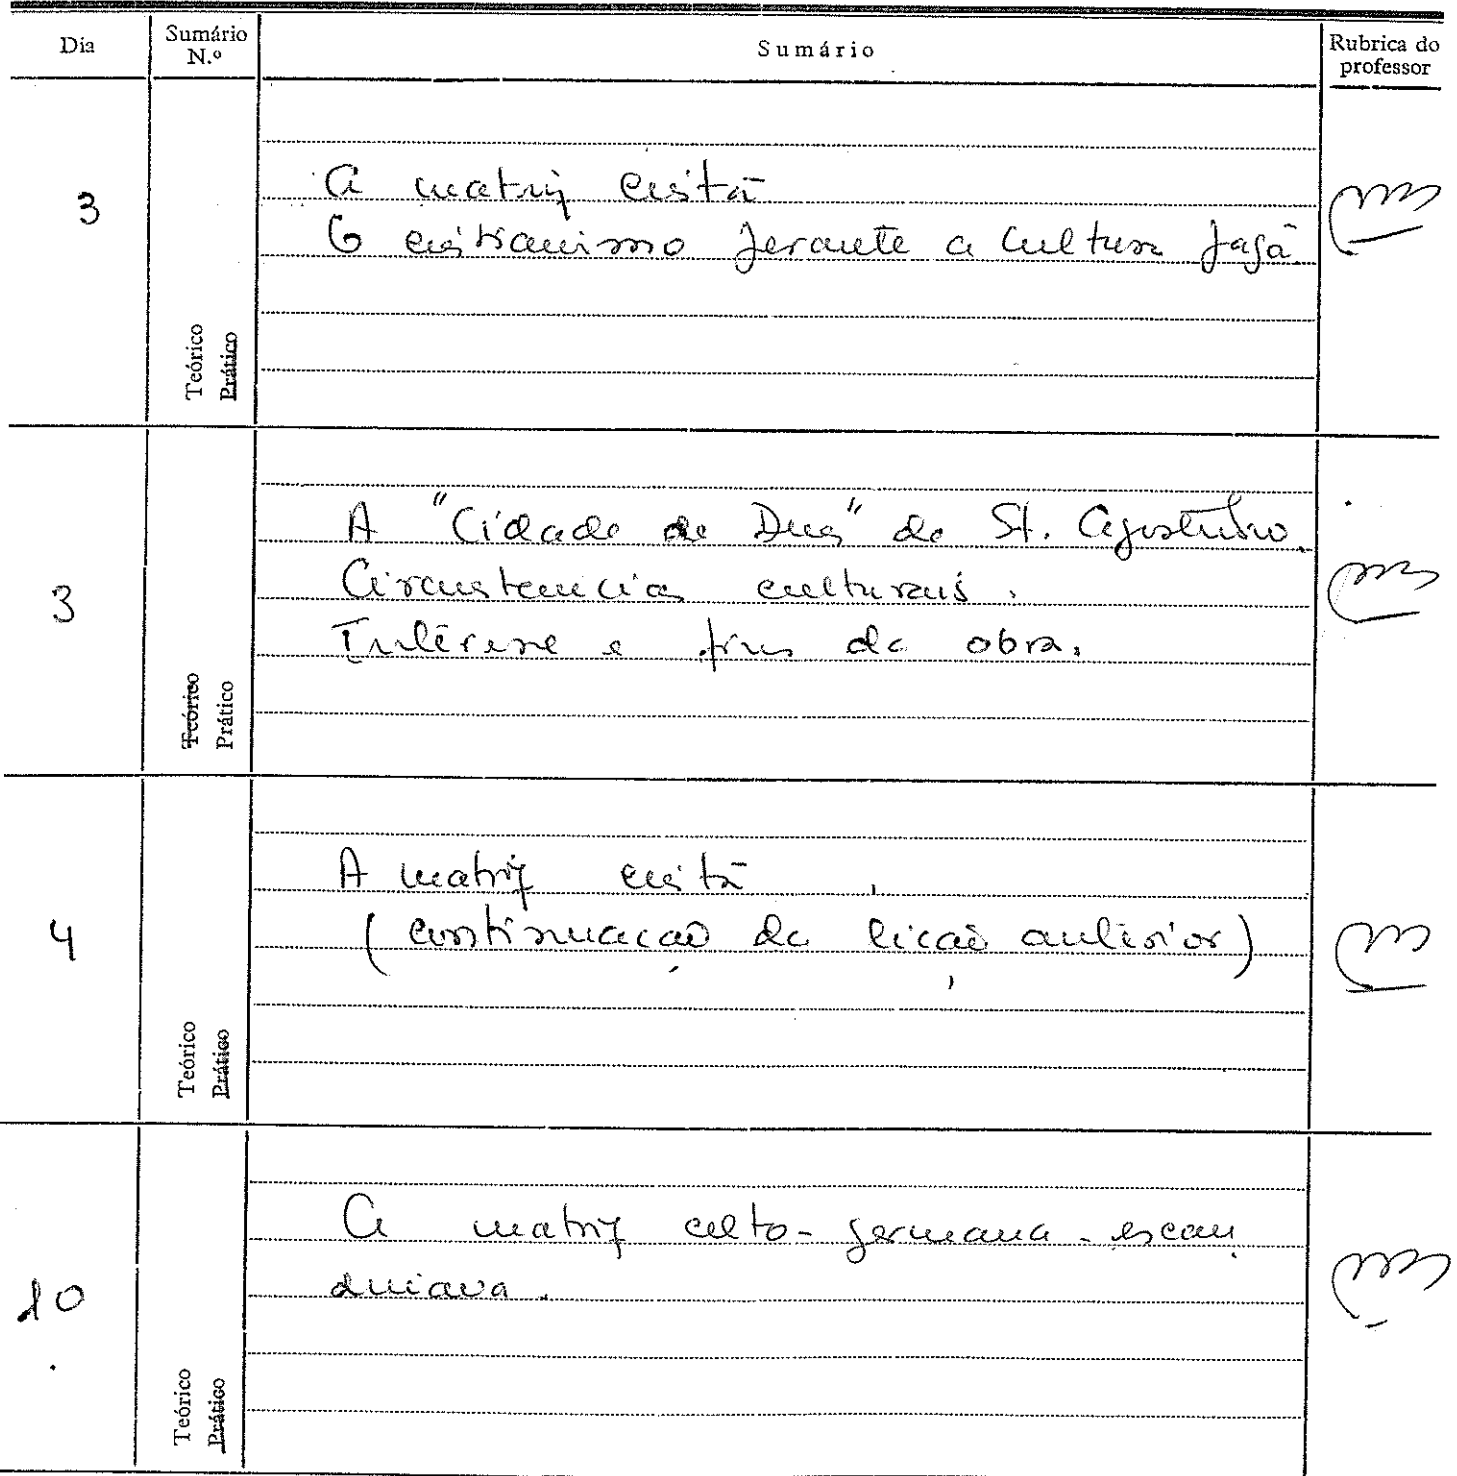 Dia
Sumário N.º
Sumário
Rubrica do professor
3
Teórico
Prático
A matriz cristã
O cristianismo perante a cultura pagã
3
Teórico
Prático
A "Cidade de Deus" de St. Agostinho.
Circunstancias culturais.
Interesse e fins da obra.
4
Teórico
Prático
A matriz cristã
(continuação da lição anterior)
10
Teórico
Prático
A matriz celto-germana-escan
dinava.